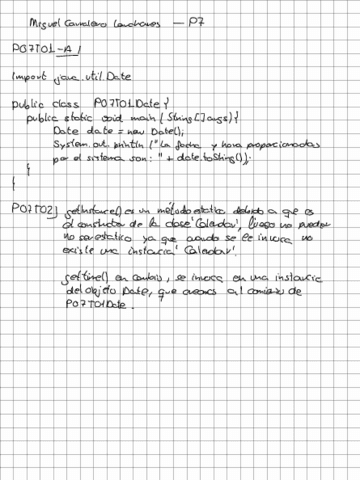 Miguel Carralero Lanchares — P7
P07T01-A
import java.util.Date
public class P07T01Date {
public static void main (String[] args) {
Date date = new Date();
System.out.println ("La fecha y hora proporcionadas
por el sistema son: " + date.toString());
}
}
P07T02] getInstance() es un método estático debido a que es
el constructor de la clase 'Calendar', luego no puede
no ser estático ya que cuando se le invoca no
existe una instancia 'Calendar'.
getTime() en cambio, se invoca en una instancia
del objeto Date, que creamos al comienzo de
P07T01Date.